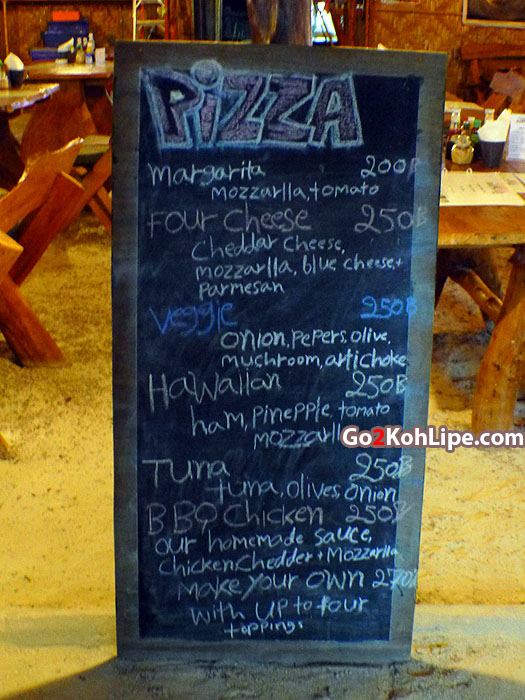 PIZZA
Margarita 200B
Mozzarlla, tomato
Four Cheese 250B
Cheddar cheese,
mozzarlla, blue cheese+
Parmesan
Veggie 250B
onion, pepers, olive,
muchroom, artichoke
Hawaiian 250B
ham, pinepple, tomato
mozzarll
Go2KohLipe.com
Tuna 250B
tuna, olives, onion
BBQ Chicken 250B
our homemade sauce,
Chicken, chedder + Mozzarlla
Make your own 270B
with up to four
toppings